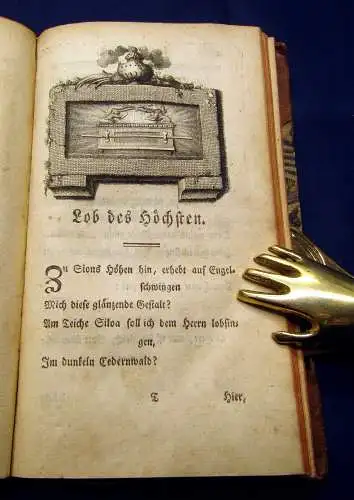 Lob des Höchsten.
Zu Sions Höhen hin, erhebt auf Engel-
schwingen
Mich diese glänzende Gestalt?
Am Teiche Siloa soll ich dem Herrn lobsin-
gen,
Im dunkeln Cedernwald?
T Hier,